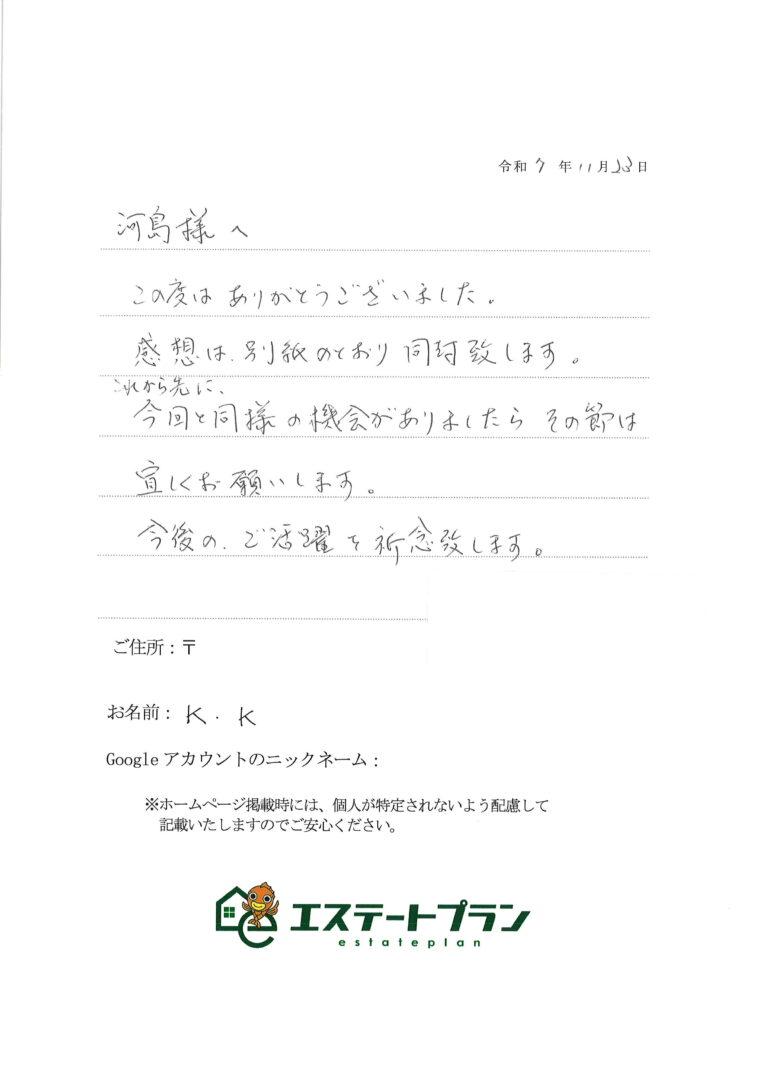 令和 7 年 11 月 23 日
河島様へ
この度は ありがとうございました。
感想は、別紙のとおり 同封致します。
これから先に、
今回と同様の機会がありましたら その節は
宜しくお願いします。
今後の、ご活躍を祈念致します。
ご住所：〒
お名前： K . K
Google アカウントのニックネーム：
※ホームページ掲載時には、個人が特定されないよう配慮して
記載いたしますのでご安心ください。
エステートプラン
estateplan